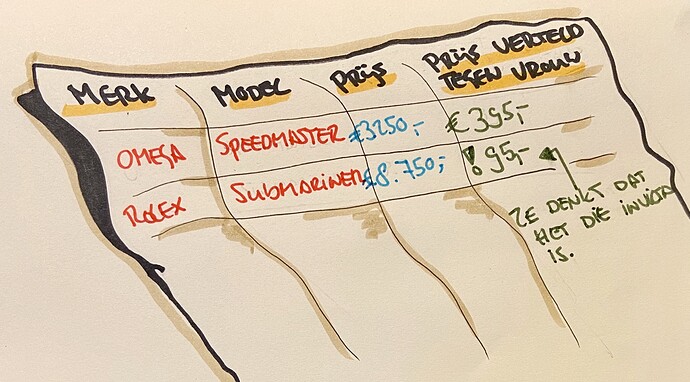 MERK MODEL PRIJS PRIJS VERTELD
TEGEN VROUW
OMEGA SPEEDMASTER €3250,- €395,-
ROLEX SUBMARINER €8.750,- ! 95,-
ZE DENKT DAT
HET DIE INVICTA
IS.